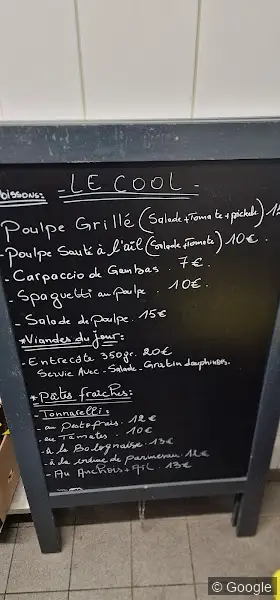 - LE COOL -
Poissons:
Poulpe Grillé (Salade+Tomate+pickels)
- Poulpe Sauté à l'ail (Salade+Tomate) 10€.
- Carpaccio de Gambas . 7€.
- Spaguetti au Poulpe . 10€.
- Salade de poulpe . 15€
*Viandes du jour:
- Entrecôte 350gr. 20€
Servie Avec - Salade - Gratin dauphinois.
*Pâtes fraîches:
- Tonnarelli:
- au Pesto frais . 12€
- au Tomates . 10€
- à la Bolognaise . 13€
- à la crème de parmesan. 12€
- Au Anchois + Ail . 13€
© Google